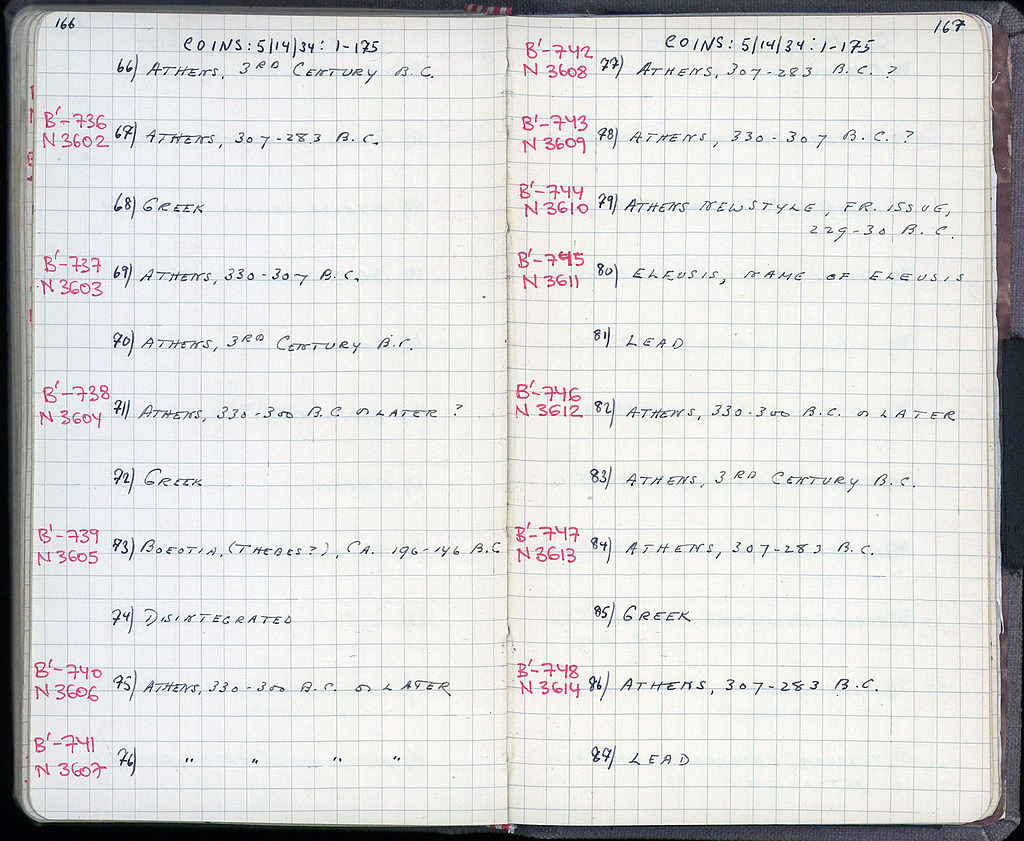 166
COINS: 5/14/34: 1-175
66) ATHENS, 3RD CENTURY B.C.
B'-736
N 3602 67) ATHENS, 307-283 B.C.
68) GREEK
B'-737
N 3603 69) ATHENS, 330-307 B.C.
70) ATHENS, 3RD CENTURY B.C.
B'-738
N 3604 71) ATHENS, 330-300 B.C OR LATER ?
72) GREEK
B'-739
N 3605 73) BOEOTIA, (THEBES?), CA. 196-146 B.C
74) DISINTEGRATED
B'-740
N 3606 75) ATHENS, 330-300 B.C. OR LATER
B'-741
N 3607 76) " " " "
167
COINS: 5/14/34: 1-175
B'-742
N 3608 77) ATHENS, 307-283 B.C. ?
B'-743
N 3609 78) ATHENS, 330-307 B.C. ?
B'-744
N 3610 79) ATHENS NEWSTYLE, FR. ISSUE,
229-30 B.C.
B'-745
N 3611 80) ELEUSIS, NAME OF ELEUSIS
81) LEAD
B'-746
N 3612 82) ATHENS, 330-300 B.C. OR LATER
83) ATHENS, 3RD CENTURY B.C.
B'-747
N 3613 84) ATHENS, 307-283 B.C.
85) GREEK
B'-748
N 3614 86) ATHENS, 307-283 B.C.
87) LEAD